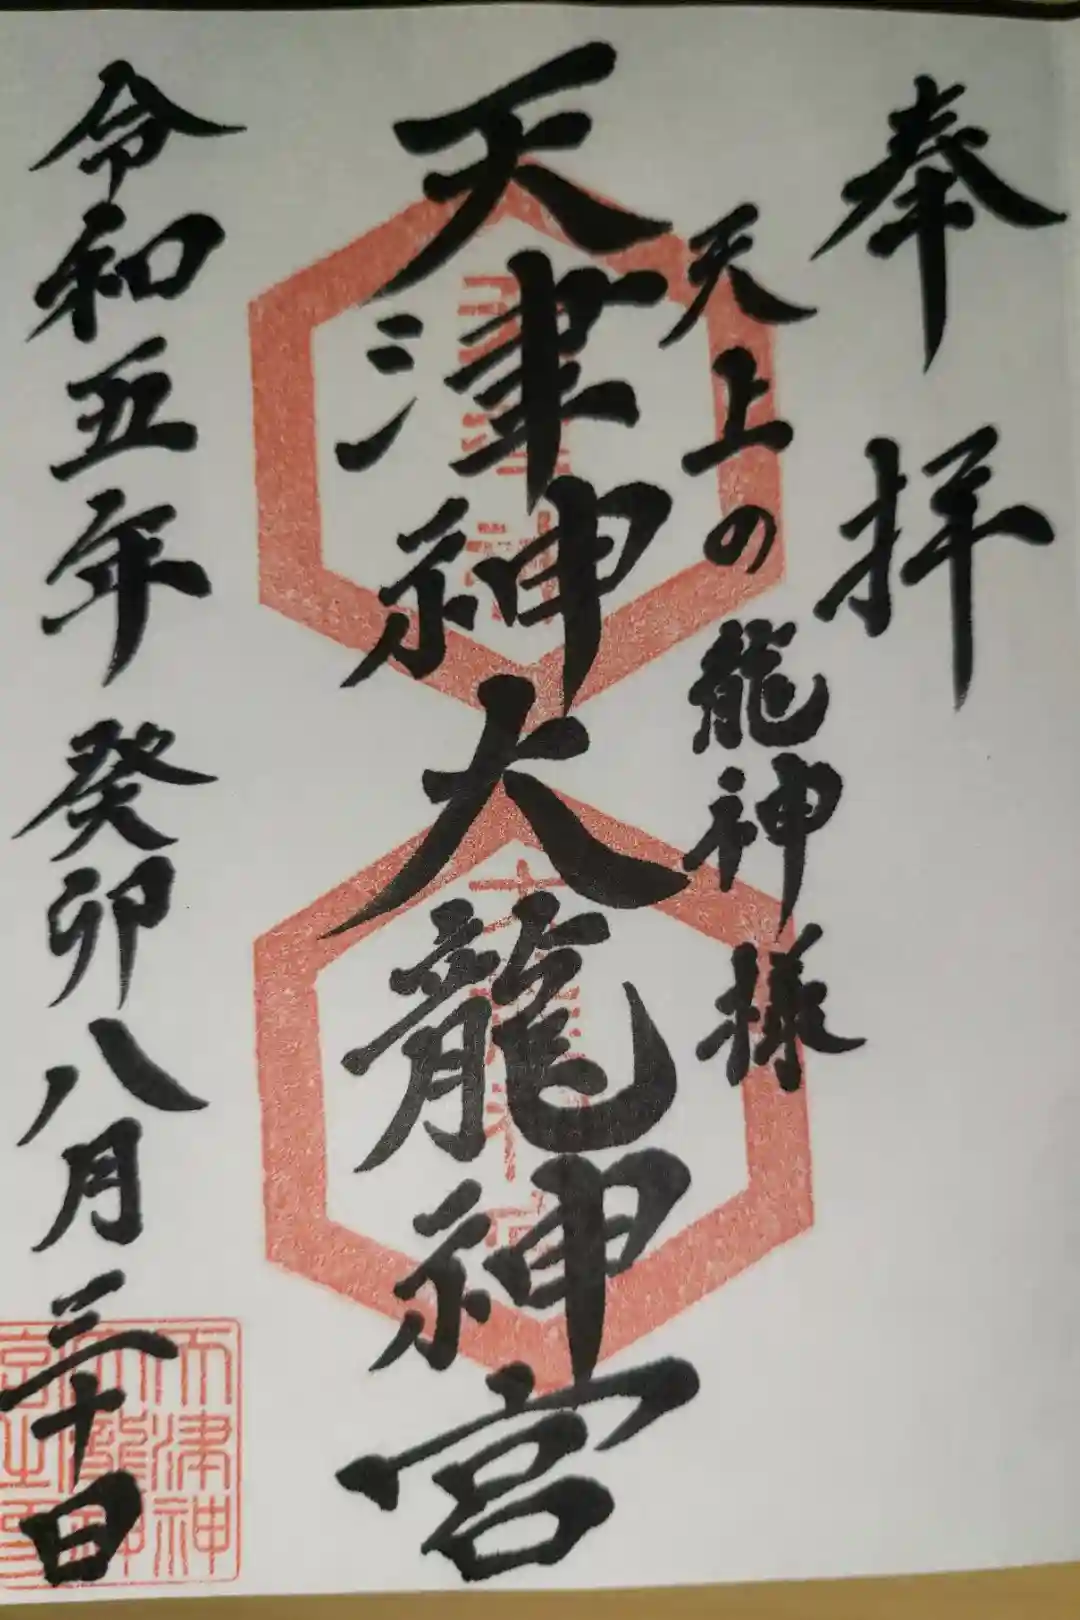 奉拝
天上の龍神様
天津神大龍神宮
令和五年 癸卯八月三十日
天津神
大龍神
宮之璽